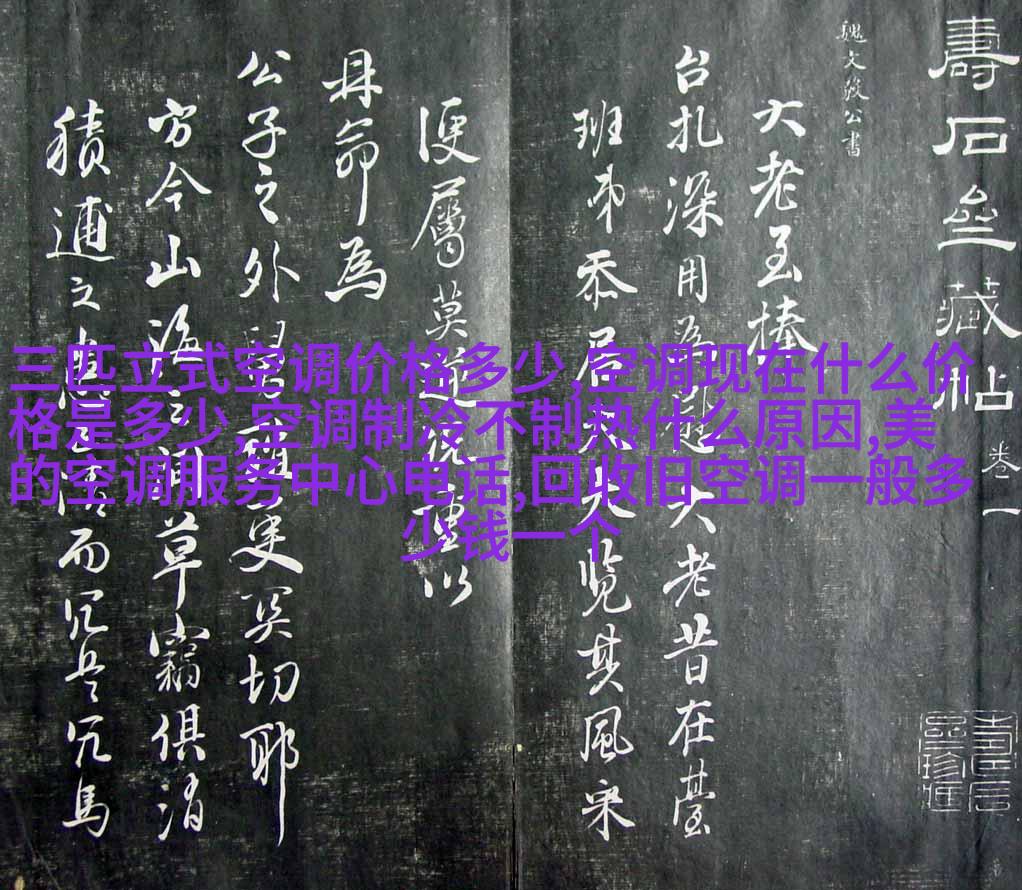 壽石齋藏帖
卷一
魏文毅公書
大老至棒
台扎深用為
大老昔在臺
班弟忝居
大覽其風采
便屬莫逆
以
冊命為
公子之外舅
叟奚切耶
方今山海之
草竊俱消
積逋之
而冗兵冗馬
三匹立式空调价格多少,空调现在什么价
格是多少,空调制冷不制热什么原因,美
的空调服务中心电话,回收旧空调一般多
少钱一个